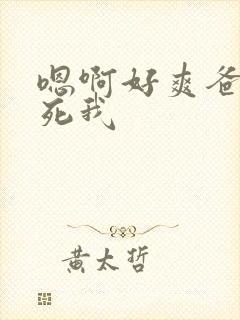 嗯啊好爽爸
死我
黄太哲